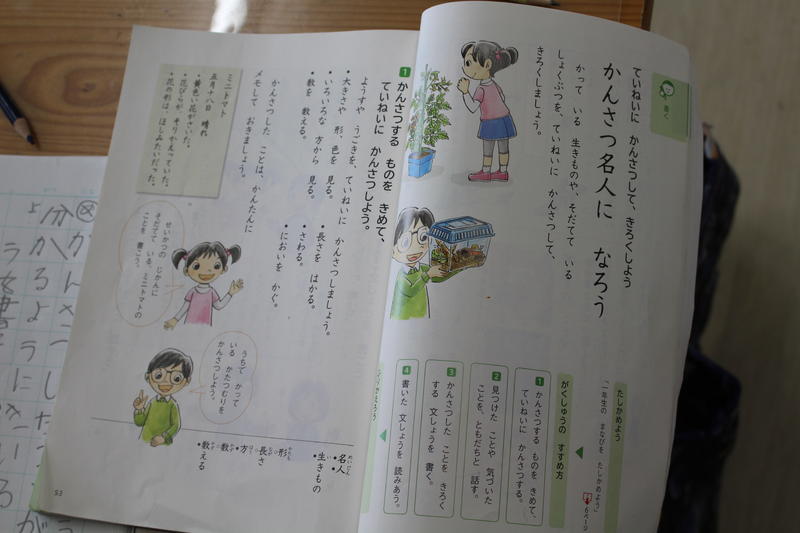 書く
ていねいに かんさつして、きろくしよう
かんさつ名人に なろう
かって いる 生きものや、そだてて いる
しょくぶつを、ていねいに かんさつして、
きろくしましょう。
たしかめよう
「一年生の まなびを たしかめよう」
6ページ
がくしゅうの すすめ方
1 かんさつする ものを きめて、
ていねいに かんさつする。
2 見つけた ことや 気づいた
ことを、ともだちと 話す。
3 かんさつした ことを きろく
する 文しょうを 書く。
4 書いた 文しょうを 読みあう。
ふりかえろう
1 かんさつする ものを きめて、
ていねいに かんさつしよう。
ようすや うごきを、ていねいに かんさつしましょう。
・大きさや 形、色を 見る。
・長さを はかる。
・いろいろな 方から 見る。
・さわる。
・数を 数える。
・においを かぐ。
かんさつした ことは、かんたんに
メモして おきましょう。
ミニトマト
五月十八日 晴れ
・黄色い花がさいた。
・花びらが そりかえっていた。
・花の形は、ほしみたいだった。
せいかつの じかんに
そだてて いる ミニトマトの
ことを 書こう。
うちで かって
いる かたつむりを
かんさつしよう。
・名人
・生きもの
・形
・長さ
・方
・数
・数える
53